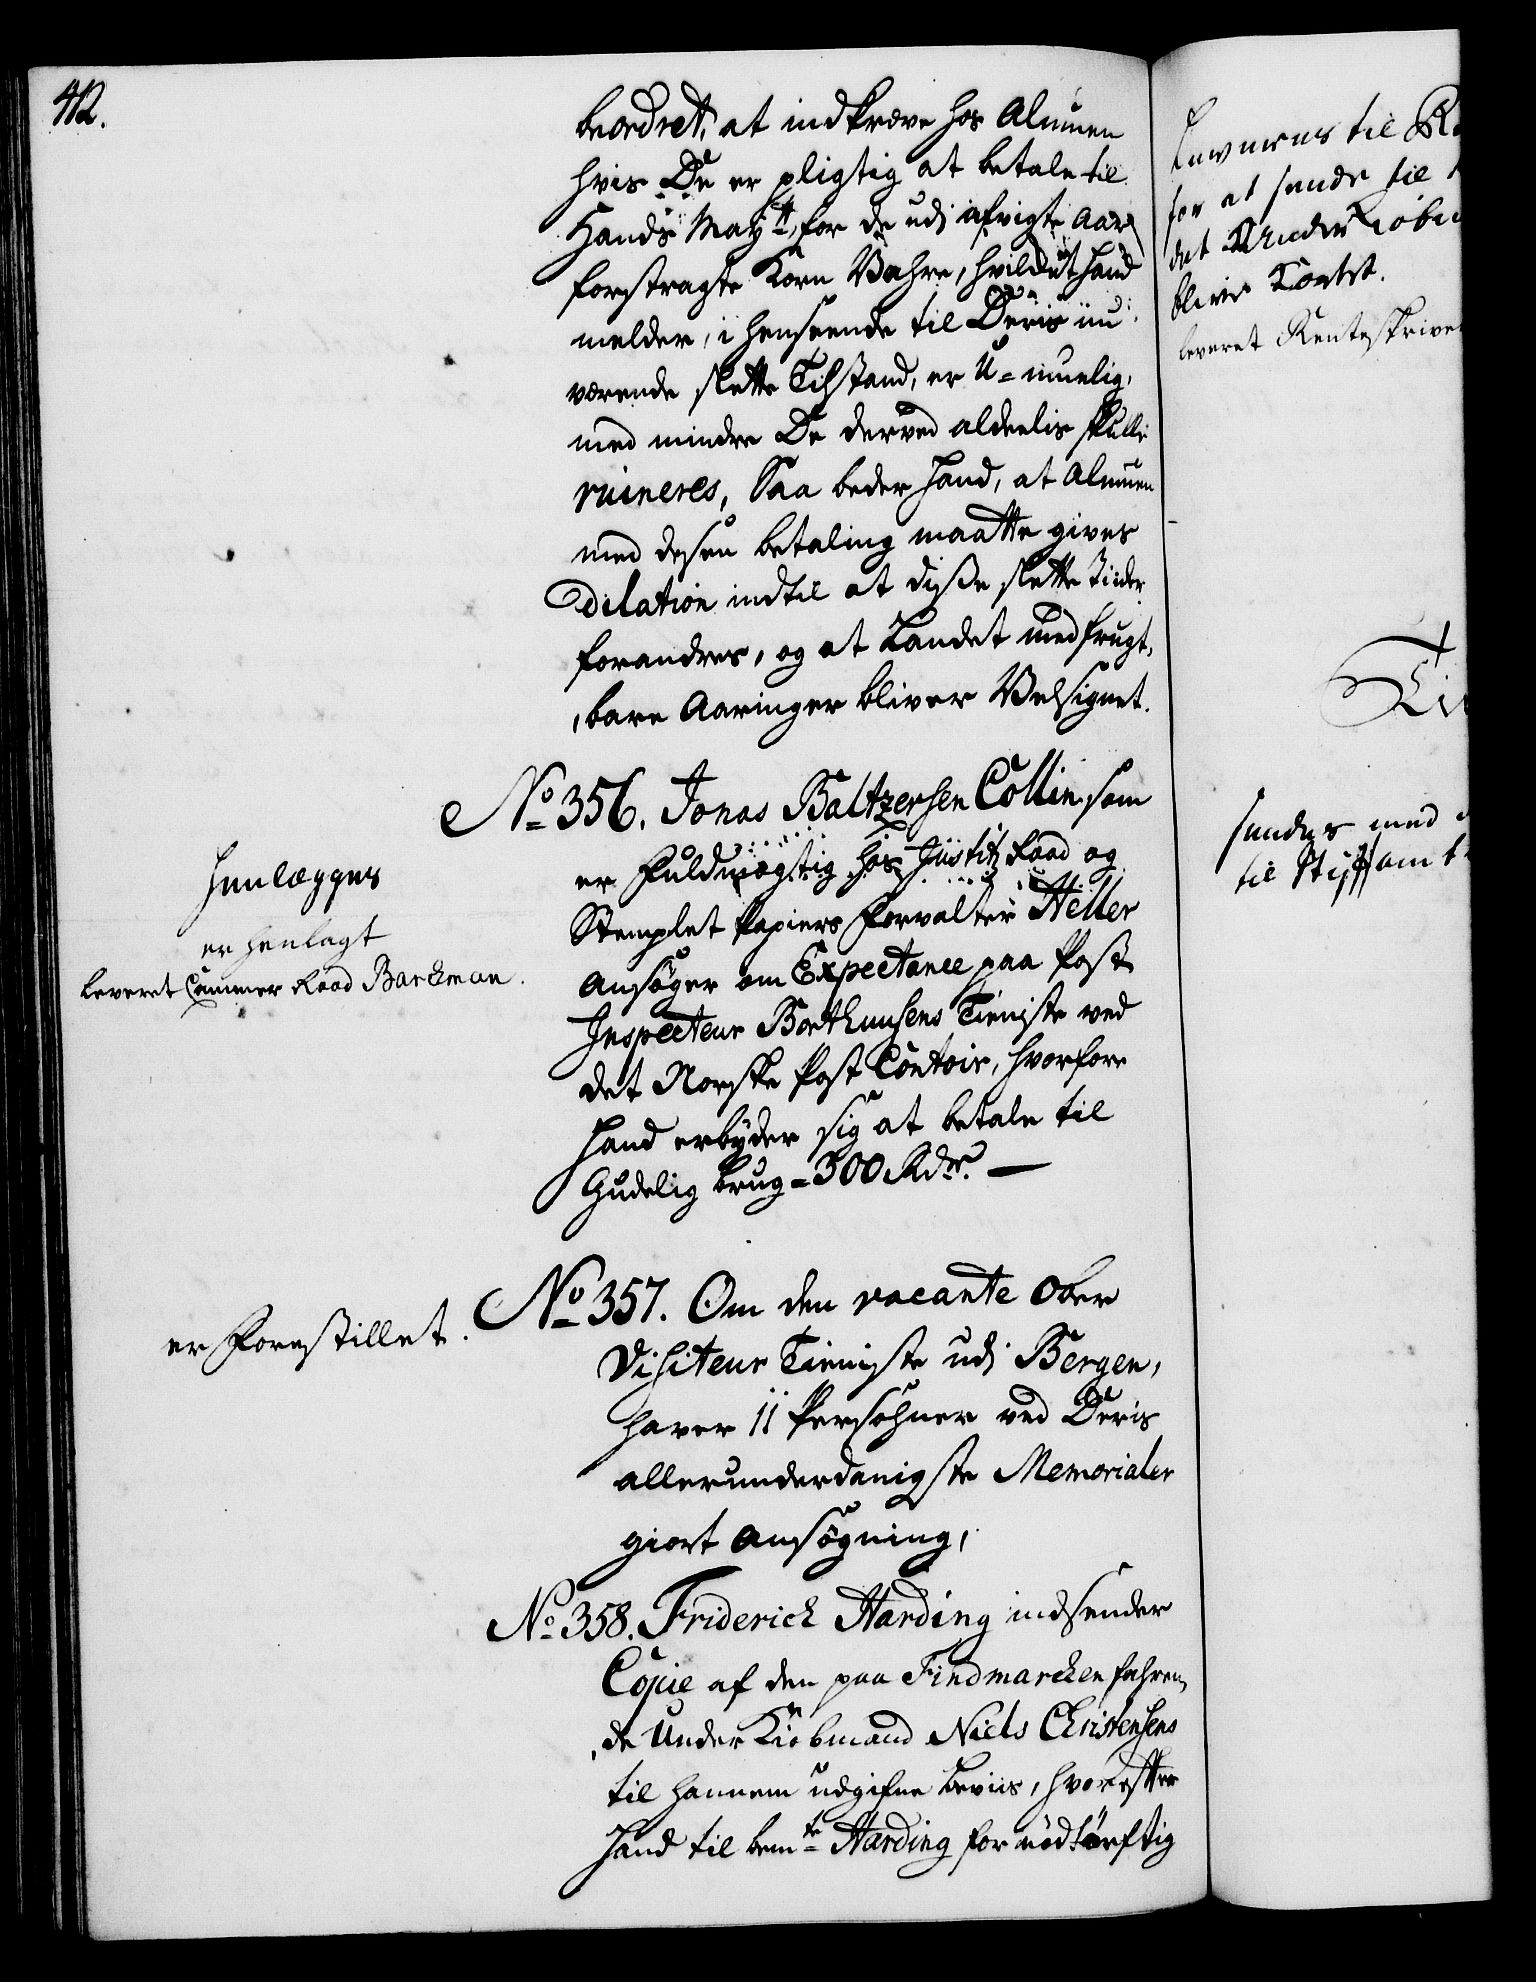 412.
beordret, at indkræve hos Almuen
hvis De er pligtig at betale til
Hands Mayt:, for de udj afvigte Aar
forstragte Korn Vahre, hvilcket Hand
melder, i henseende til Deris nu-
værende slette Tilstand, er U-muelig,
med mindre De derved aldeelis skulle
ruineres, Saa beder Hand, at Almuen
med desen betaling maatte gives
Dilation indtil at disse slette Tiider
forandres, og at Landet med frugt,
,bare Aaringer bliver Velsignet.
No 356. Jonas Baltzersen Collin som
er Fuldmægtig hos Justitz Raad og
Stemplet Papiers Forvalter Heller
Ansøger om Expectance paa Post
Inspecteur Borthuusens Tieniste ved
det Norske Post Contoir, hvorfore
Hand erbyder sig at betale til
Gudelig brug = 300 Rdr. —
Henlægges
er henlagt
leveret Cammer Raad Barckman.
No 357. Om den vacante Ober
Visiteur Tieniste udj Bergen,
haver 11 Persohner ved Deris
allerunderdanigste Memorialer
giort Ansøgning,
er Forestillet.
No 358. Friderich Harding indsender
Copie af den paa Findmarcken fahren,
,de Under Kiøbmand Niels Christensens
til hannem udgifne beviis, hvorefter
Hand til bemte Harding for nödtörftig
for at sende til
det Under Kiøbm
blive Contet.
leveret Renteskriver
sendes med
til Stiftamt